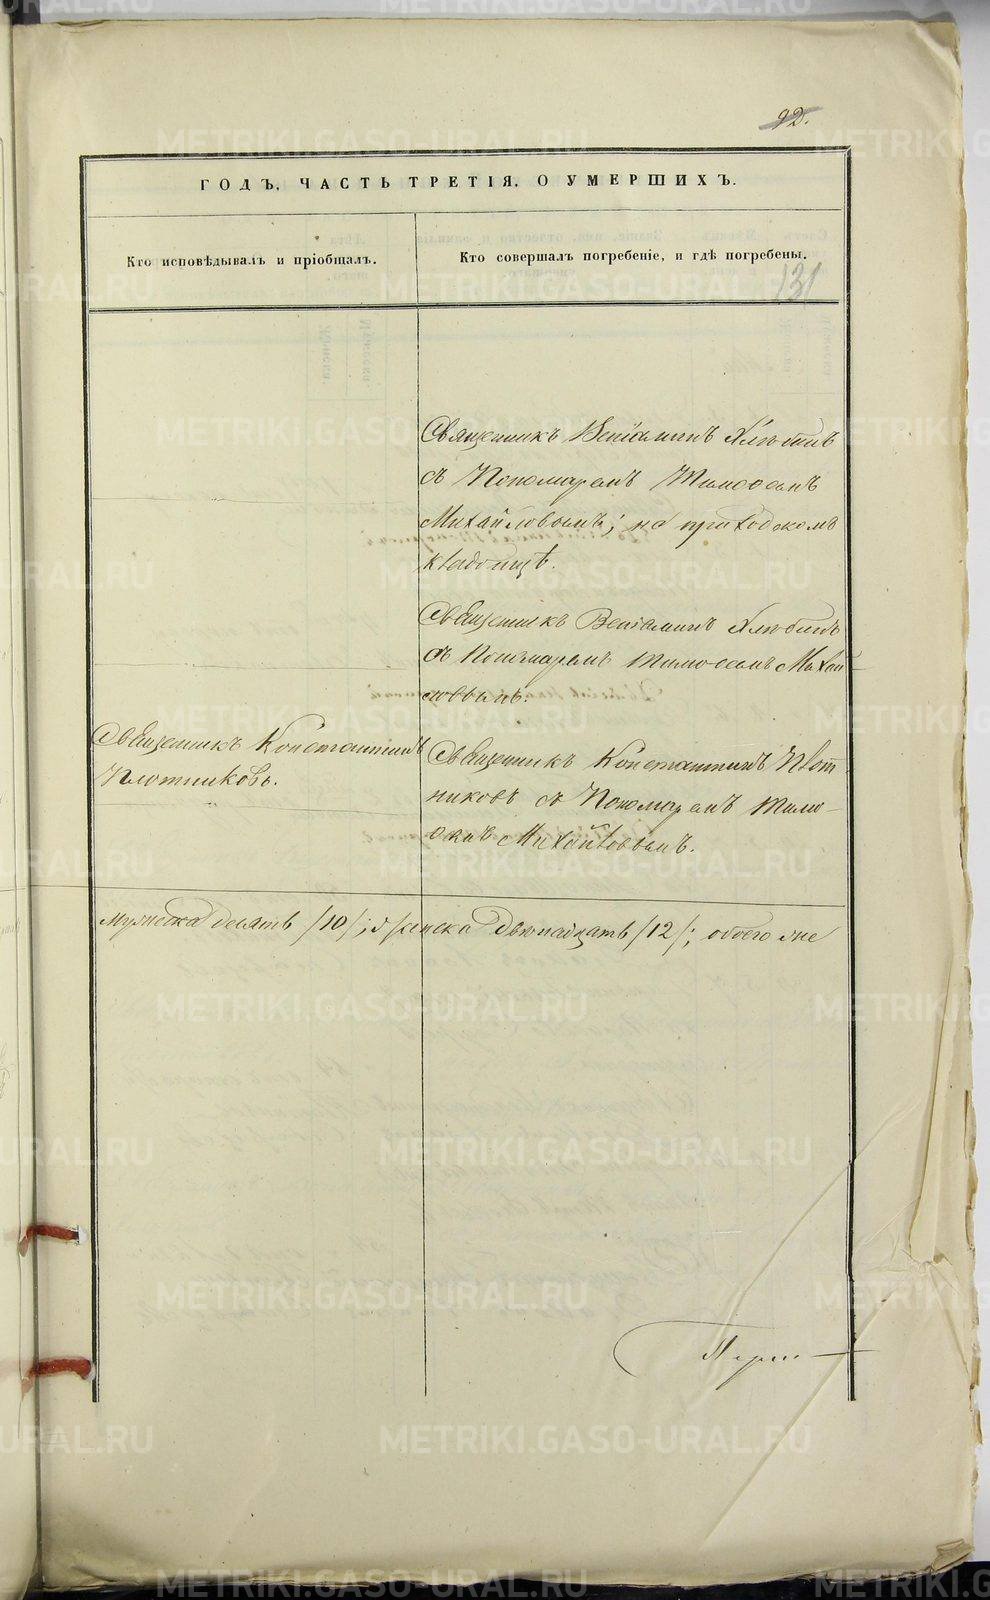 92.
ГОДЪ, ЧАСТЬ ТРЕТІЯ, О УМЕРШИХЪ.
Кто исповѣдывалъ и пріобщалъ.
Кто совершалъ погребеніе, и гдѣ погребены.
131
Священникъ Веніаминъ Хлѣбинъ
съ Пономаремъ Тимофеемъ
Михайловымъ; на приходскомъ
кладбищѣ.
Священникъ Веніаминъ Хлѣбинъ
съ Пономаремъ Тимофеемъ Михай
ловымъ.
Священникъ Константинъ
Плотниковъ.
Священникъ Константинъ Плот
никовъ съ Пономаремъ Тимо-
феемъ Михайловымъ.
мужеска десять /10/; женска двенадцать /12/; обоего же
METRIKI.GASO-URAL.RU